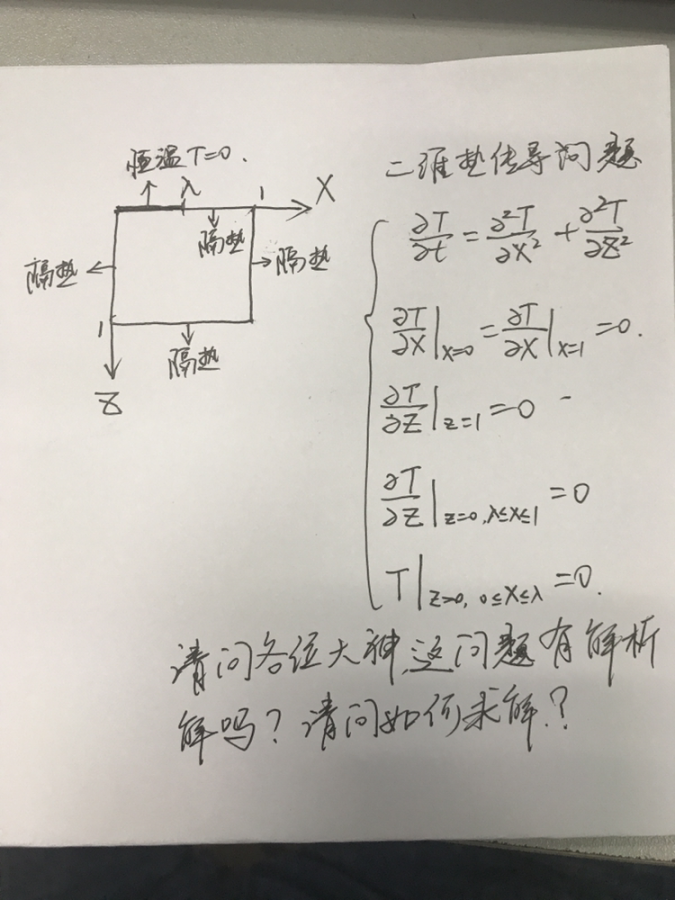 恒温T=0.
λ
1
X
隔热
隔热
隔热
1
隔热
Z
二维热传导问题
∂T/∂t = ∂²T/∂X² + ∂²T/∂Z²
∂T/∂X|x=0 = ∂T/∂X|x=1 = 0.
∂T/∂Z|z=1 = 0
∂T/∂Z|z=0, λ≤x≤1 = 0
T|z=0, 0≤x≤λ = 0.
请问各位大神,这问题有解析
解吗?请问如何求解.?